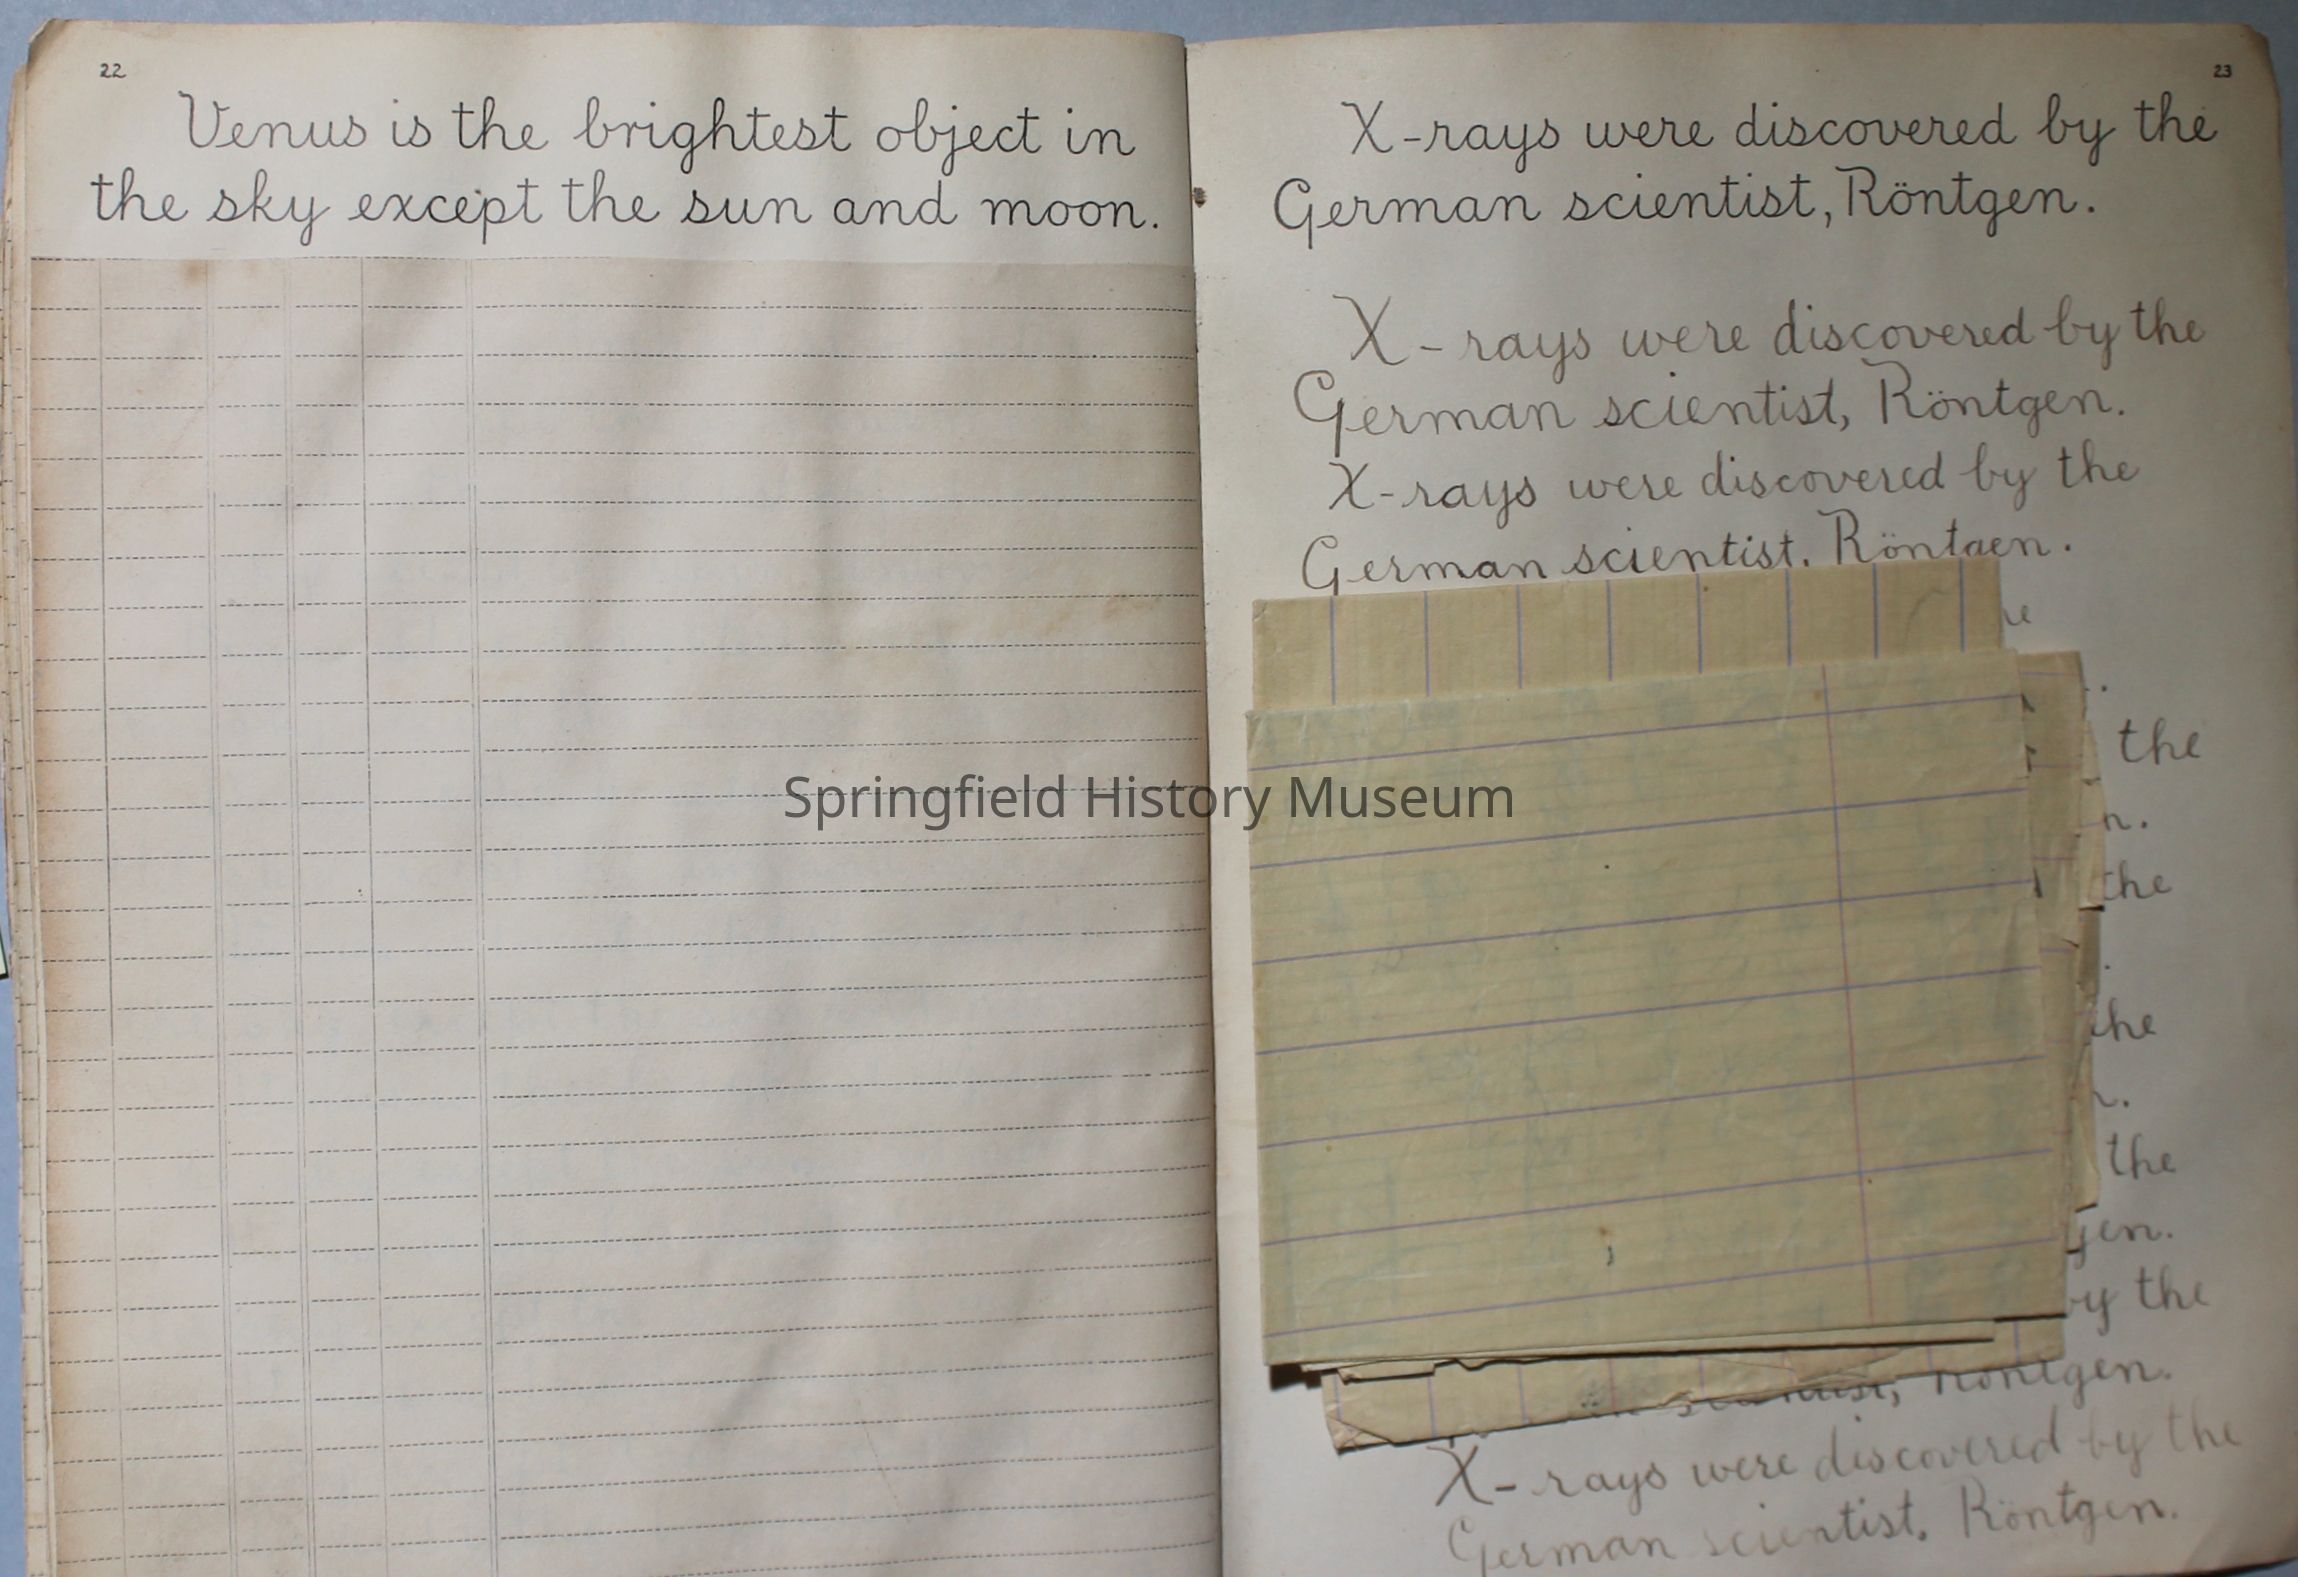 22
Venus is the brightest object in
the sky except the sun and moon.
23
X-rays were discovered by the
German scientist, Röntgen.
X-rays were discovered by the
German scientist, Röntgen.
X-rays were discovered by the
German scientist, Röntgen.
the
the
the
the
by the
Röntgen.
X-rays were discovered by the
German scientist, Röntgen.
Springfield History Museum